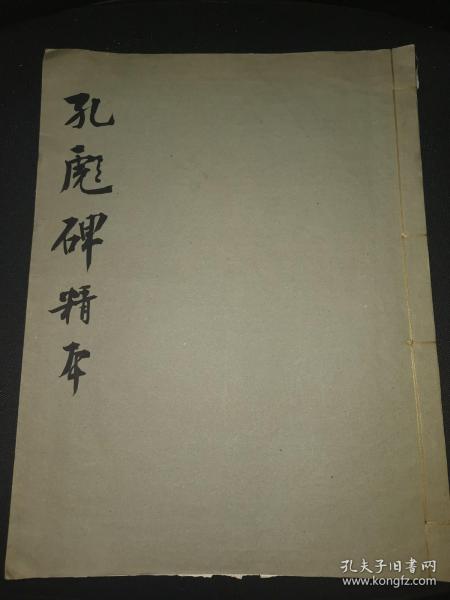 孔彪碑精本
孔夫子旧书网
www.kongfz.com